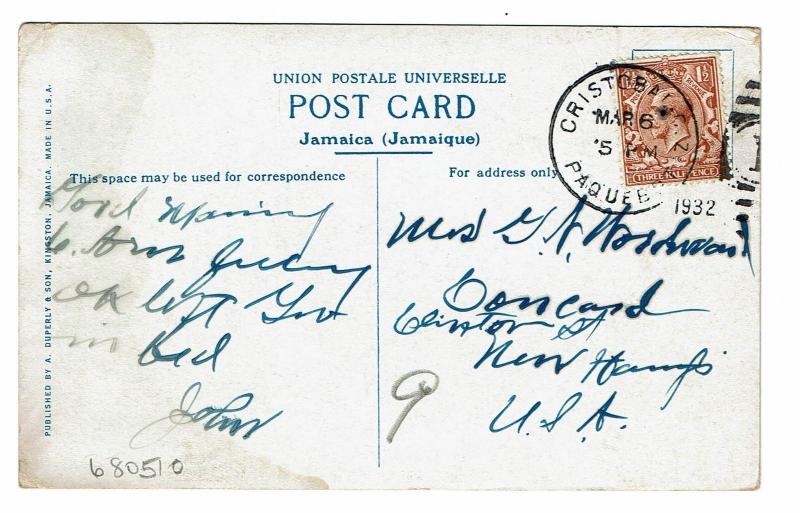 UNION POSTALE UNIVERSELLE
POST CARD
Jamaica (Jamaique)
This space may be used for correspondence
For address only
PUBLISHED BY A. DUPERLY & SON, KINGSTON, JAMAICA. MADE IN U.S.A.
CRISTOBAL
MAR 6
5 PM
PAQUEB
1932
1½
THREE HALFPENCE
Good Morning
OK left
in bed
John
Mrs G
Concord
Clinton St
New Hamps
U.S.A.
9
680510